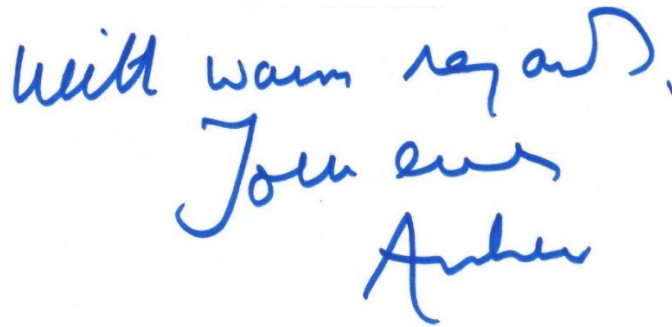 With warm regards,
Yours ever
Andrew